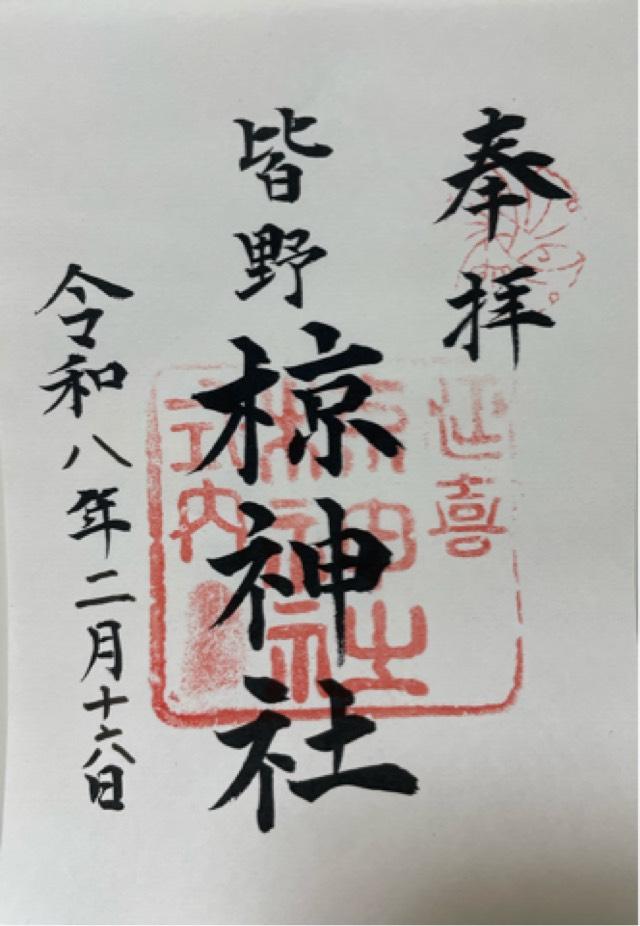 奉拝
皆野
椋神社
令和八年二月十六日
延喜
椋神社
式内